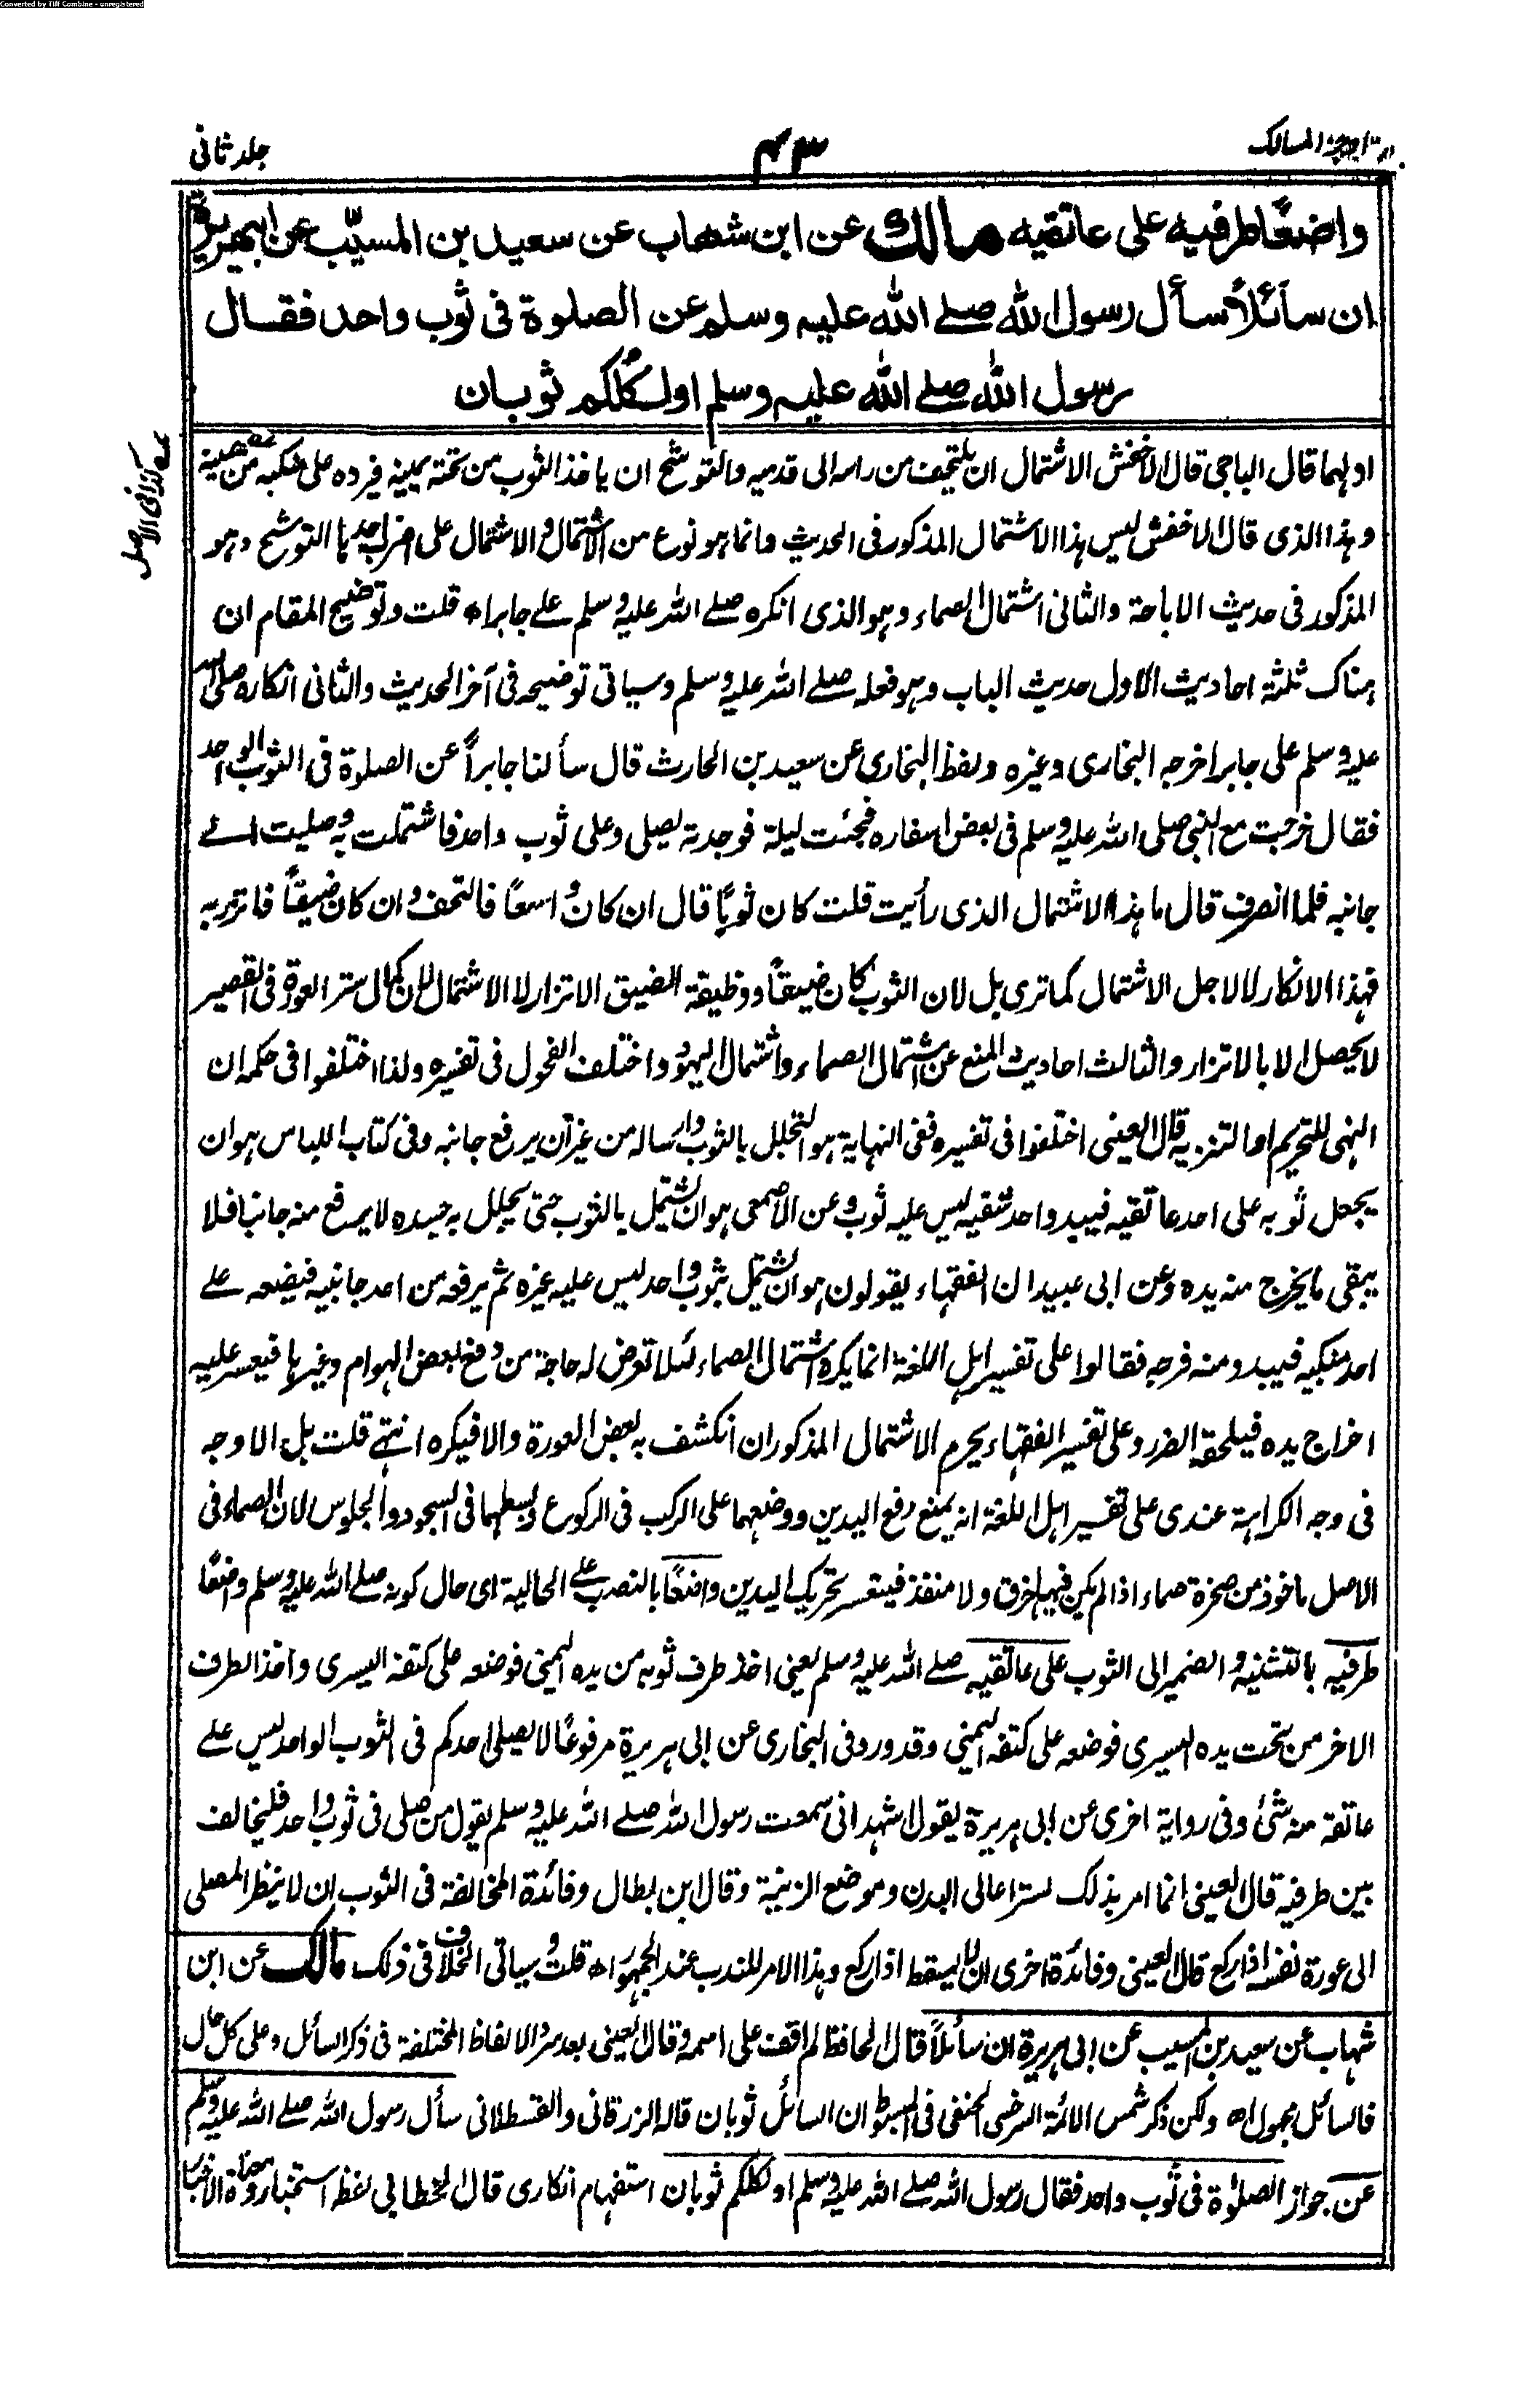 Converted by Tiff Combine - unregistered
اوجز المسالك
۳۴
جلد ثانى
واضعًا طرفيه على عاتقيه مالك عن ابن شهاب عن سعيد بن المسيّب عن ابى هريرة
ان سآئلاً سأل رسول الله صلے الله عليه وسلم عن الصلوة فى ثوب واحد فقال
رسول الله صلے الله عليه وسلم اولكلكم ثوبان
اولهما قال الباجى قال الاخفش الاشتمال ان يلتحف من راسه الى قدميه والتوشح ان ياخذ الثوب من تحته يمينه فيرده على منكبه من يمينه
وهذا الذى قال الاخفش ليس هذا الاشتمال المذكور فى الحديث وانما هو نوع من الاشتمال والاشتمال على اضرب احدها التوشح وهو
المذكور فى حديث الاباحة والثانى اشتمال الصماء وهو الذى انكره صلے الله عليه وسلم علے جابر اه قلت وتوضيح المقام ان
هناك ثلثة احاديث الاول حديث الباب وهو فعله صلے الله عليه وسلم وسياتى توضيحه فى آخر الحديث والثانى انكاره صلى الله
عليه وسلم على جابر اخرجه البخارى وغيره ولفظ البخارى عن سعيد بن الحارث قال سألنا جابراً عن الصلوة فى الثوب الواحد
فقال خرجت مع النبى صلى الله عليه وسلم فى بعض اسفاره فجئت ليلة فوجدته يصلى وعلى ثوب واحد فاشتملت به وصليت الے
جانبه فلما انصرف قال ما هذا الاشتمال الذى رأيت قلت كان ثوبًا قال ان كان واسعًا فالتحف وان كان ضيقاً فاتزر به
فهذا الانكار لا لاجل الاشتمال كما ترى بل لان الثوب كان ضيقاً ووظيفة الضيق الاتزار لا الاشتمال لان كمال ستر العورة فى القصير
لا يحصل الا بالاتزار والثالث احاديث المنع عن اشتمال الصماء واشتمال اليهود واختلف الفحول فى تفسيره ولذا اختلفوا فى حكمه ان
النهى للتحريم او التنزيه قال العينى اختلفوا فى تفسيره ففى النهاية هو التجلل بالثوب وارساله من غير ان يرفع جانبه وفى كتاب اللباس هو ان
يجعل ثوبه على احد عاتقيه فيبدو احد شقيه ليس عليه ثوب وعن الاصمعى هو ان يشتمل بالثوب حتى يجلل به جسده لا يرفع منه جانبا فلا
يبقى ما يخرج منه يده وعن ابى عبيد ان الفقهاء يقولون هو ان يشتمل بثوب واحد ليس عليه غيره ثم يرفعه من احد جانبيه فيضعه علے
احد منكبيه فيبدو منه فرجه فقالوا على تفسير اهل اللغة انما يكره اشتمال الصماء لئلا تعرض له حاجة من دفع بعض الهوام وغيرها فيعسر عليه
اخراج يده فيلحقه الضرر وعلى تفسير الفقهاء يحرم الاشتمال المذكور ان انكشف به بعض العورة والا فيكره انتہے قلت بل الاوجه
فى وجه الكراهة عندى على تفسير اهل اللغة انه يمنع رفع اليدين ووضعهما على الركب فى الركوع وبسطهما فى السجود والجلوس لان الصماء فى
الاصل ماخوذ من صخرة صماء اذا لم يكن فيها خرق ولا منفذ فيتعسر تحريك اليدين واضعًا بالنصب علے الحالية اى حال كونه صلے الله عليه وسلم واضعًا
طرفيه بالتثنيه والضمير الى الثوب على عاتقيه صلے الله عليه وسلم يعنى اخذ طرف ثوبه من يده اليمنى فوضعه على كتفه اليسرى واخذ الطرف
الاخر من تحت يده اليسرى فوضعه على كتفه اليمنى وقد ورد فى البخارى عن ابى هريرة مرفوعًا لا يصلى احدكم فى الثوب الواحد ليس علے
عاتقه منه شئ وفى رواية اخرى عن ابى هريرة يقول اشهد انى سمعت رسول الله صلے الله عليه وسلم يقول من صلى فى ثوب واحد فليخالف
بين طرفيه قال العينى انما امر بذلك لستر اعالى البدن وموضع الزينة وقال ابن بطال وفائدة المخالفة فى الثوب ان لا ينظر المصلى
الى عورة نفسه اذا ركع قال العينى وفائدة اخرى ان لا يسقط اذا ركع وهذا الامر للندب عند الجمهور اه قلت وسياتى الخلاف فى ذلك مالك عن ابن
شهاب عن سعيد بن المسيب عن ابى هريرة ان سائلاً قال الحافظ لم اقف على اسمه وقال العينى بعد سرد الالفاظ المختلفة فى ذكر السائل وعلى كل حال
فالسائل مجهول اه ولكن ذكر شمس الائمة السرخسى الحنفى فى المبسوط ان السائل ثوبان قاله الزرقانى والقسطلانى سأل رسول الله صلے الله عليه وسلم
عن جواز الصلوة فى ثوب واحد فقال رسول الله صلے الله عليه وسلم اولكلكم ثوبان استفهام انكارى قال الخطابى لفظه استخبار ومعناه الاخبار
عه كذا فى الاصل